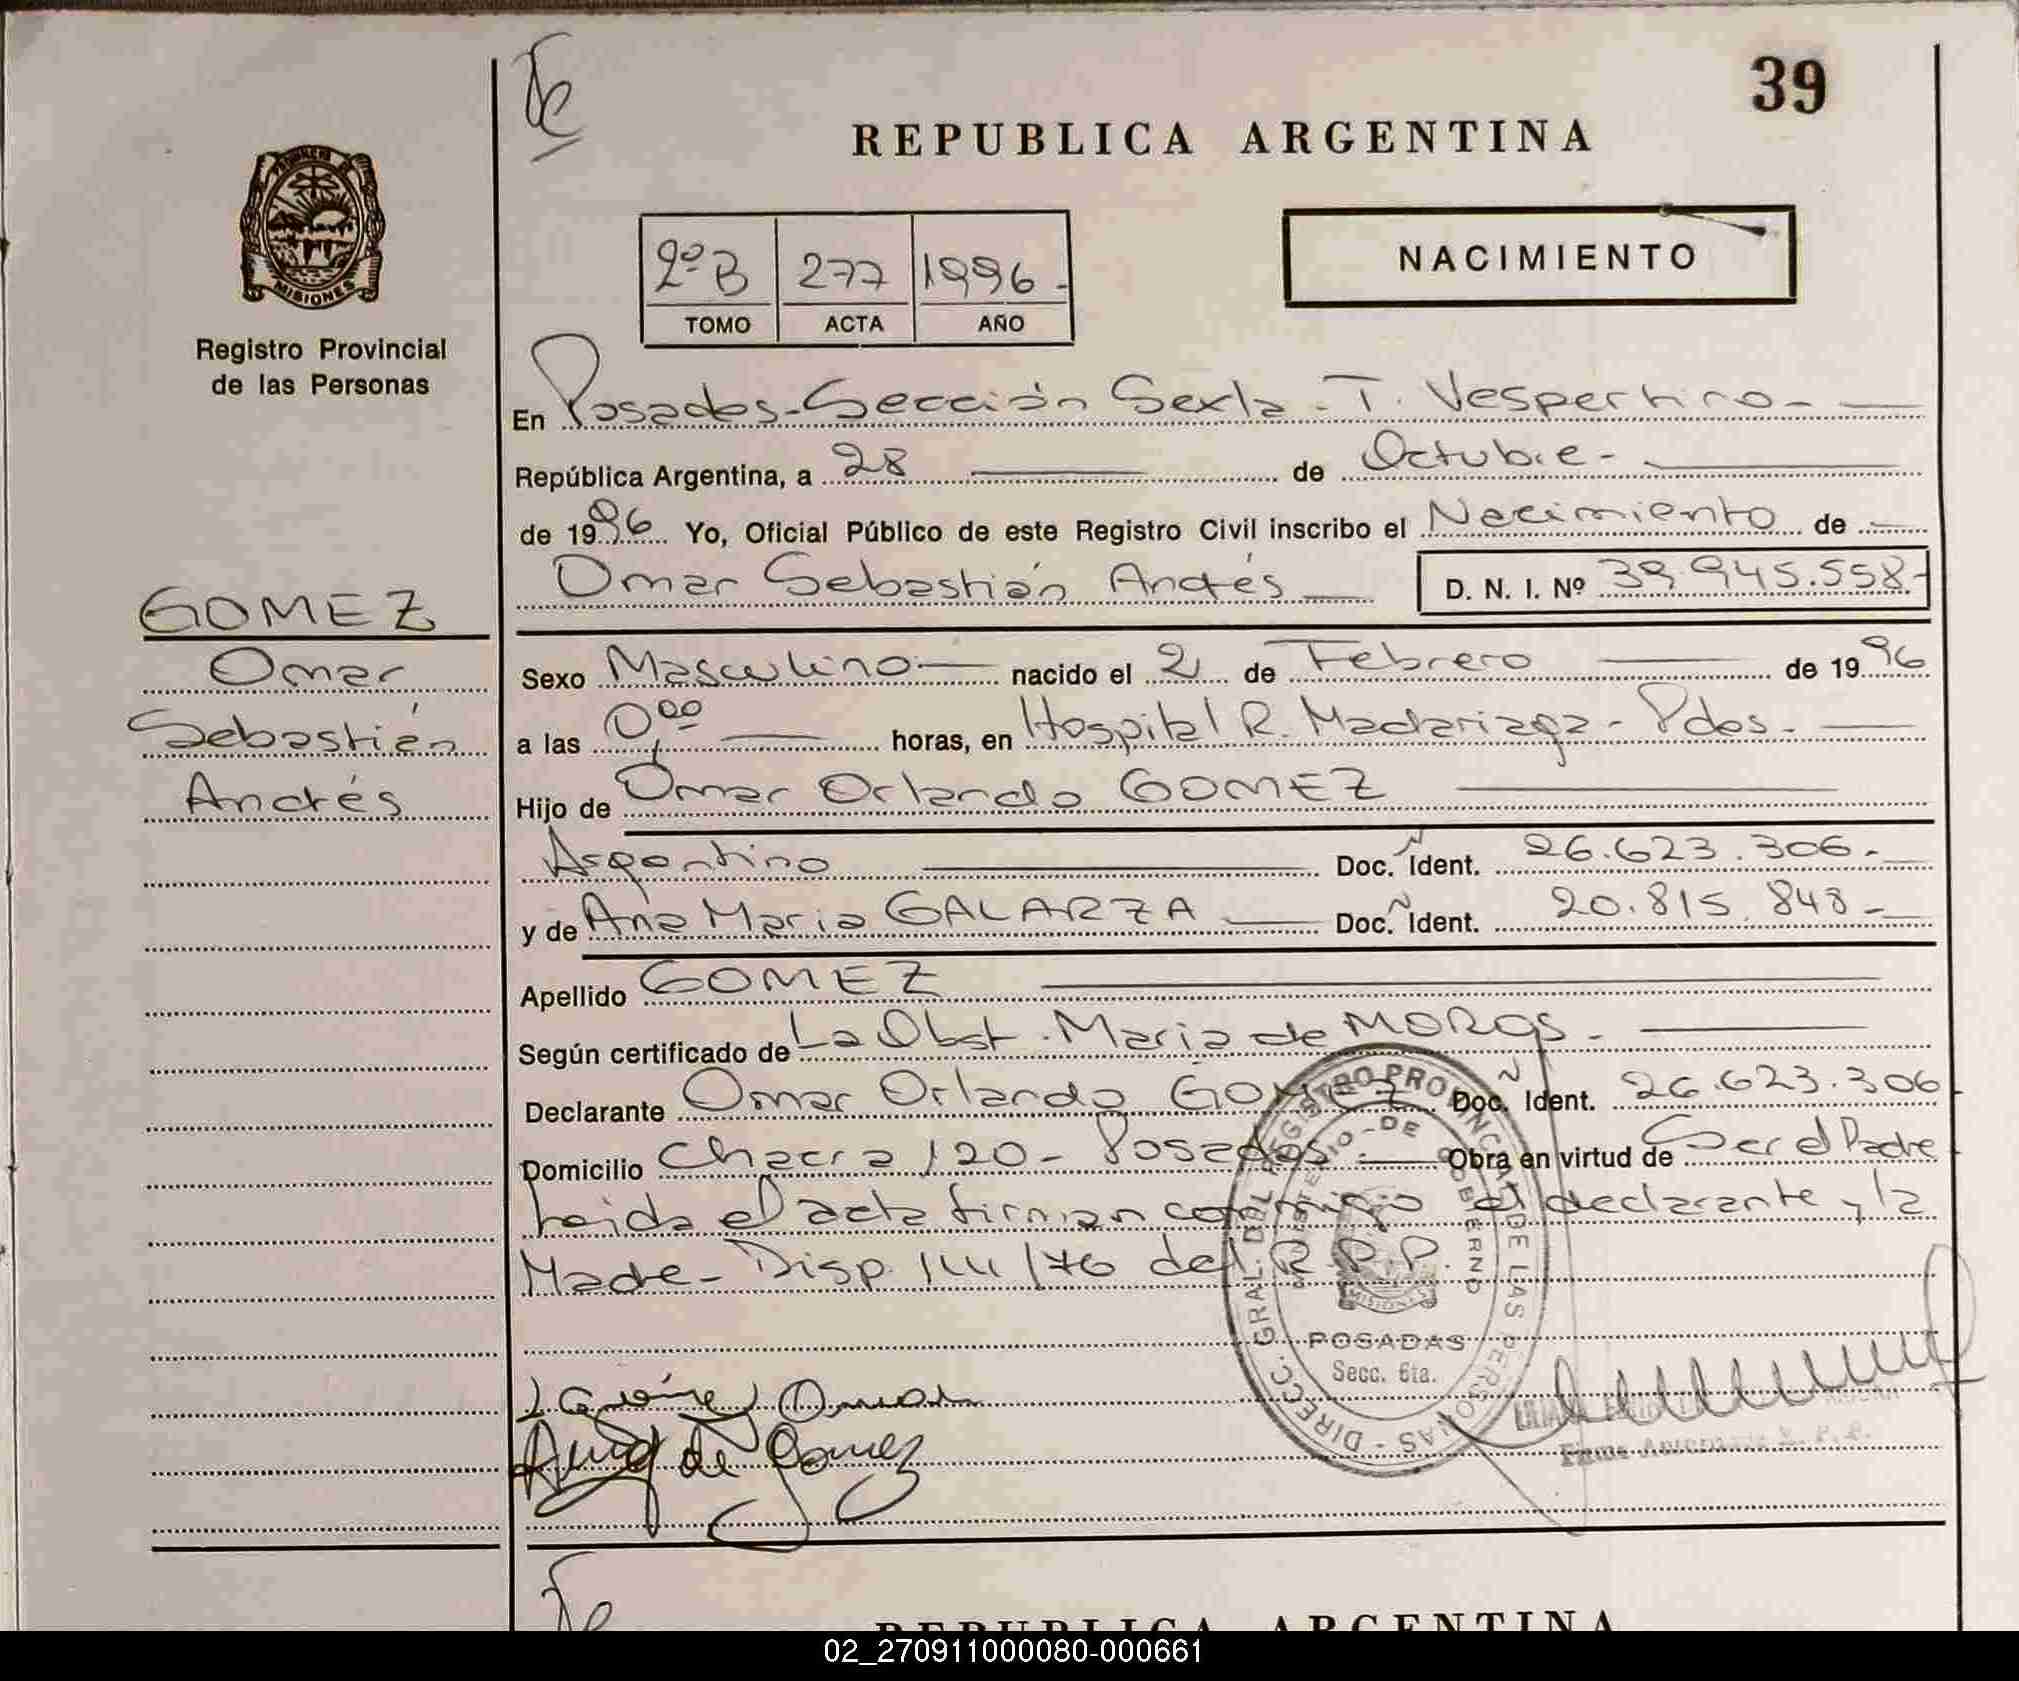 39
REPUBLICA ARGENTINA
NACIMIENTO
2º B 277 1996-
TOMO ACTA AÑO
MISIONES
Registro Provincial
de las Personas
En Posadas-Sección Sexta-T. Vespertino-
República Argentina, a 28 de Octubre-
de 1996 Yo, Oficial Público de este Registro Civil inscribo el Nacimiento de
Omar Sebastián Andrés D. N. I. Nº 39.945.558-
GOMEZ
Omar
Sebastián
Andrés
Sexo Masculino nacido el 2 de Febrero de 1996
a las 0,00 horas, en Hospital R. Madariaga-Pdas.
Hijo de Omar Orlando GOMEZ
Argentino Doc. Ident. 26.623.306-
y de Ana Maria GALARZA Doc. Ident. 20.815.848-
Apellido GOMEZ
Según certificado de La Obst. Maria de
Declarante Omar Orlando GOMEZ Doc. Ident. 26.623.306
Domicilio Chacra 120- Posadas- Obra en virtud de Ser el Padre
Leida el acta firman conmigo el declarante y la
Madre- Disp. /76 del R.P.P.
DIRECC. GRAL. DEL REGISTRO PROVINCIAL DE LAS PERSONAS
MINISTERIO DE GOBIERNO
MISIONES
POSADAS
Secc. 6ta.
Gómez Omar
de Gomez
REPUBLICA ARGENTINA
02_270911000080-000661